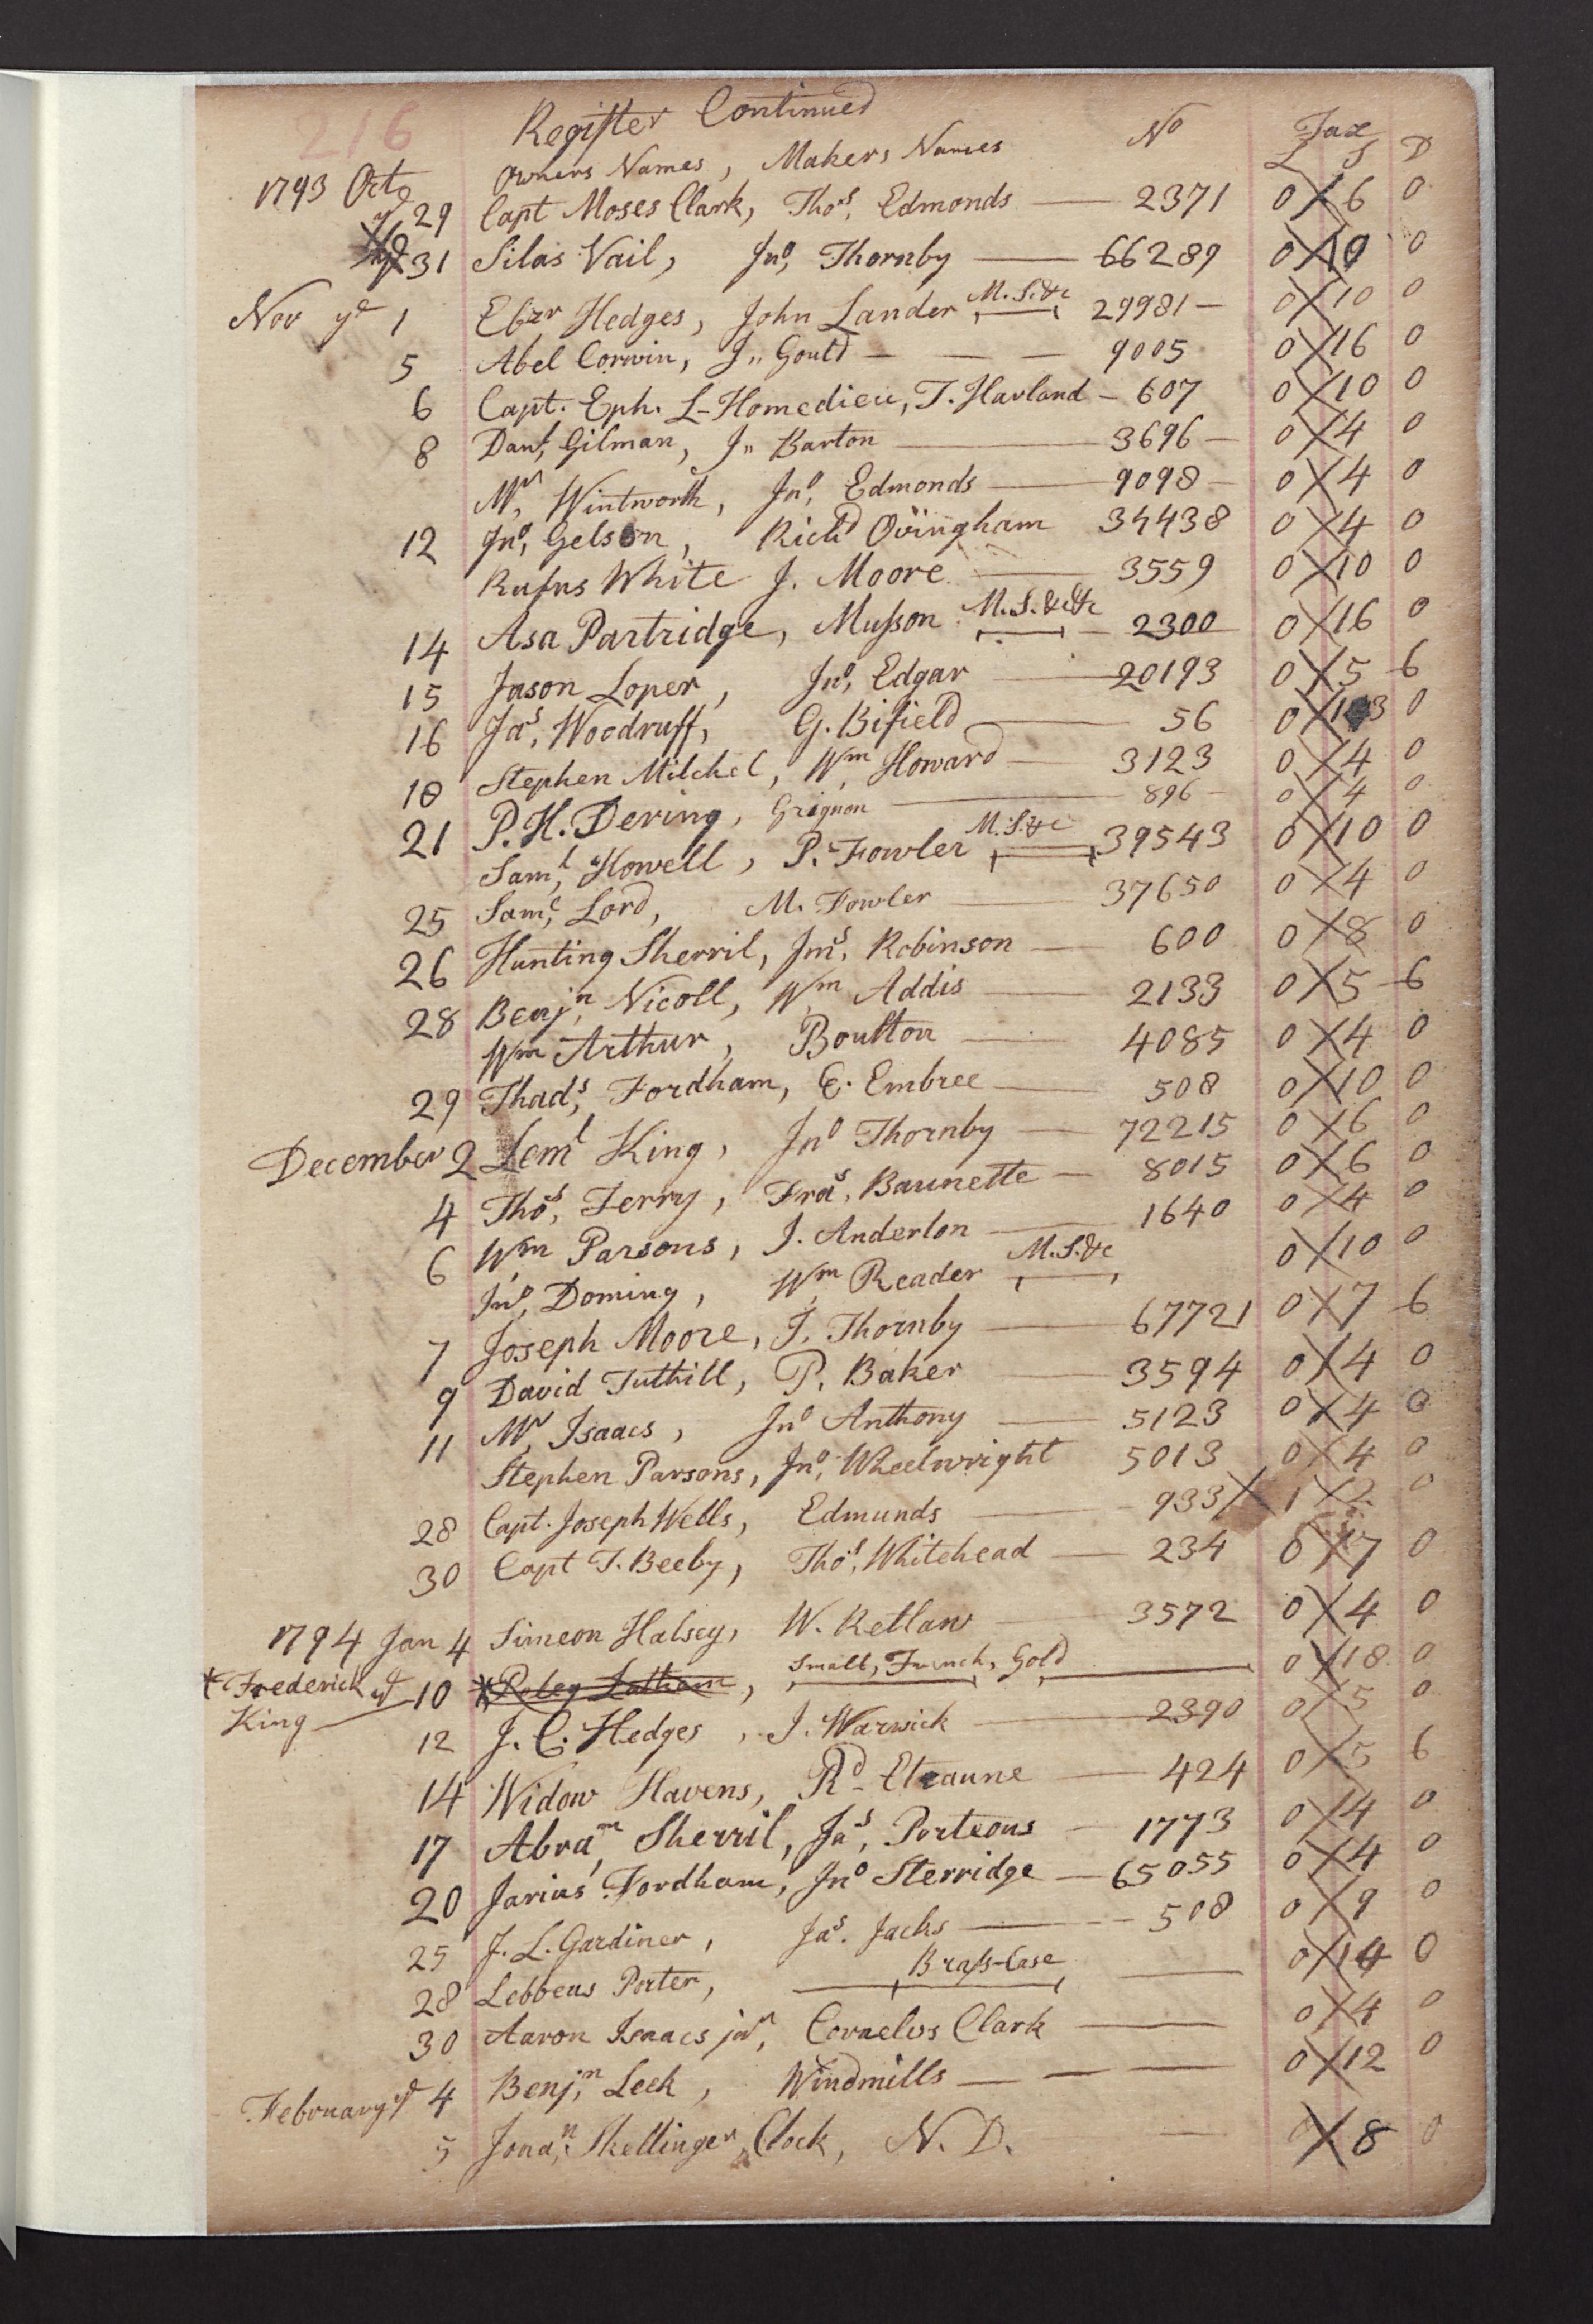 216 Register Continued
1793 Octo Owners Names, Makers Names No Tax £ S D
yd 29 Capt Moses Clark, Thos, Edmonds — 2371 0 6 0
31 Silas Vail, Jno, Thornby — 66289 0 10 0
Nov yd 1 Ebzr Hedges, John Lander M.S.&c 29981 — 0 10 0
5 Abel Corwin, J,, Gould — — — 9005 0 16 0
6 Capt. Eph. L-Homedieu, T. Harland — 607 0 10 0
8 Danl, Gilman, J,, Barton — 3696 — 0 4 0
Mr, Wintworth, Jno, Edmonds — 9098 — 0 4 0
12 Jno, Gelson, Richd Ovingham 34438 0 4 0
Rufus White J. Moore — 3559 0 10 0
14 Asa Partridge, Musson M.S.&c&c — 2300 0 16 0
15 Jason Loper, Jno, Edgar — 20193 0 5 6
16 Jas, Woodruff, G. Bifield — 56 0 0
18 Stephen Milchel, Wm Howard — 3123 0 4 0
21 P.H. Dering, Grignon — 896 — 0 4 0
Saml, Howell, P. Fowler M.S.&c 39543 0 10 0
25 Saml, Lord, M. Fowler — 37650 0 4 0
26 Hunting Sherril, Jms, Robinson — 600 0 8 0
28 Benjn, Nicoll, Wm Addis — 2133 0 5 6
Wm Arthur, Boulton — 4085 0 4 0
29 Thads, Fordham, E. Embree — 508 0 10 0
December 2 Leml King, Jno Thornby — 72215 0 6 0
4 Thos, Terry, Fras, Baunette — 8015 0 6 0
6 Wm Parsons, J. Anderlon — 1640 0 4 0
Jno, Doming, Wm Reader M.S.&c 0 10 0
7 Joseph Moore, J. Thornby — 67721 0 7 6
9 David Tuthill, P. Baker — 3594 0 4 0
11 Mr, Isaacs, Jno Anthony — 5123 0 4 0
Stephen Parsons, Jno, Wheelwright 5013 0 4 0
28 Capt. Joseph Wells, Edmunds — 933 1 2 0
30 Capt T. Beeby, Thos, Whitehead — 234 0 17 0
1794 Jan 4 Simeon Halsey, W. Retlaw — 3572 0 4 0
* Frederick yd 10 * Latham, Small, French, Gold — 0 18 0
King — 12 J. C. Hedges, J. Warwick — 2390 0 5 0
14 Widow Havens, Rd — 424 0 5 6
17 Abram, Sherril, Jas, Porteous — 1773 0 14 0
20 Jarius Fordham, Jno Sterridge — 65055 0 4 0
25 J. L. Gardiner, Jas. Jacks — 508 0 9 0
28 Lebbeus Porter, Brass-Case — 0 14 0
30 Aaron Isaacs jur, Cornelus Clark — 0 4 0
February yd 4 Benjn, Leek, Windmills — — — 0 12 0
5 Jonan, Skellinger, Clock, N. D. — 0 8 0